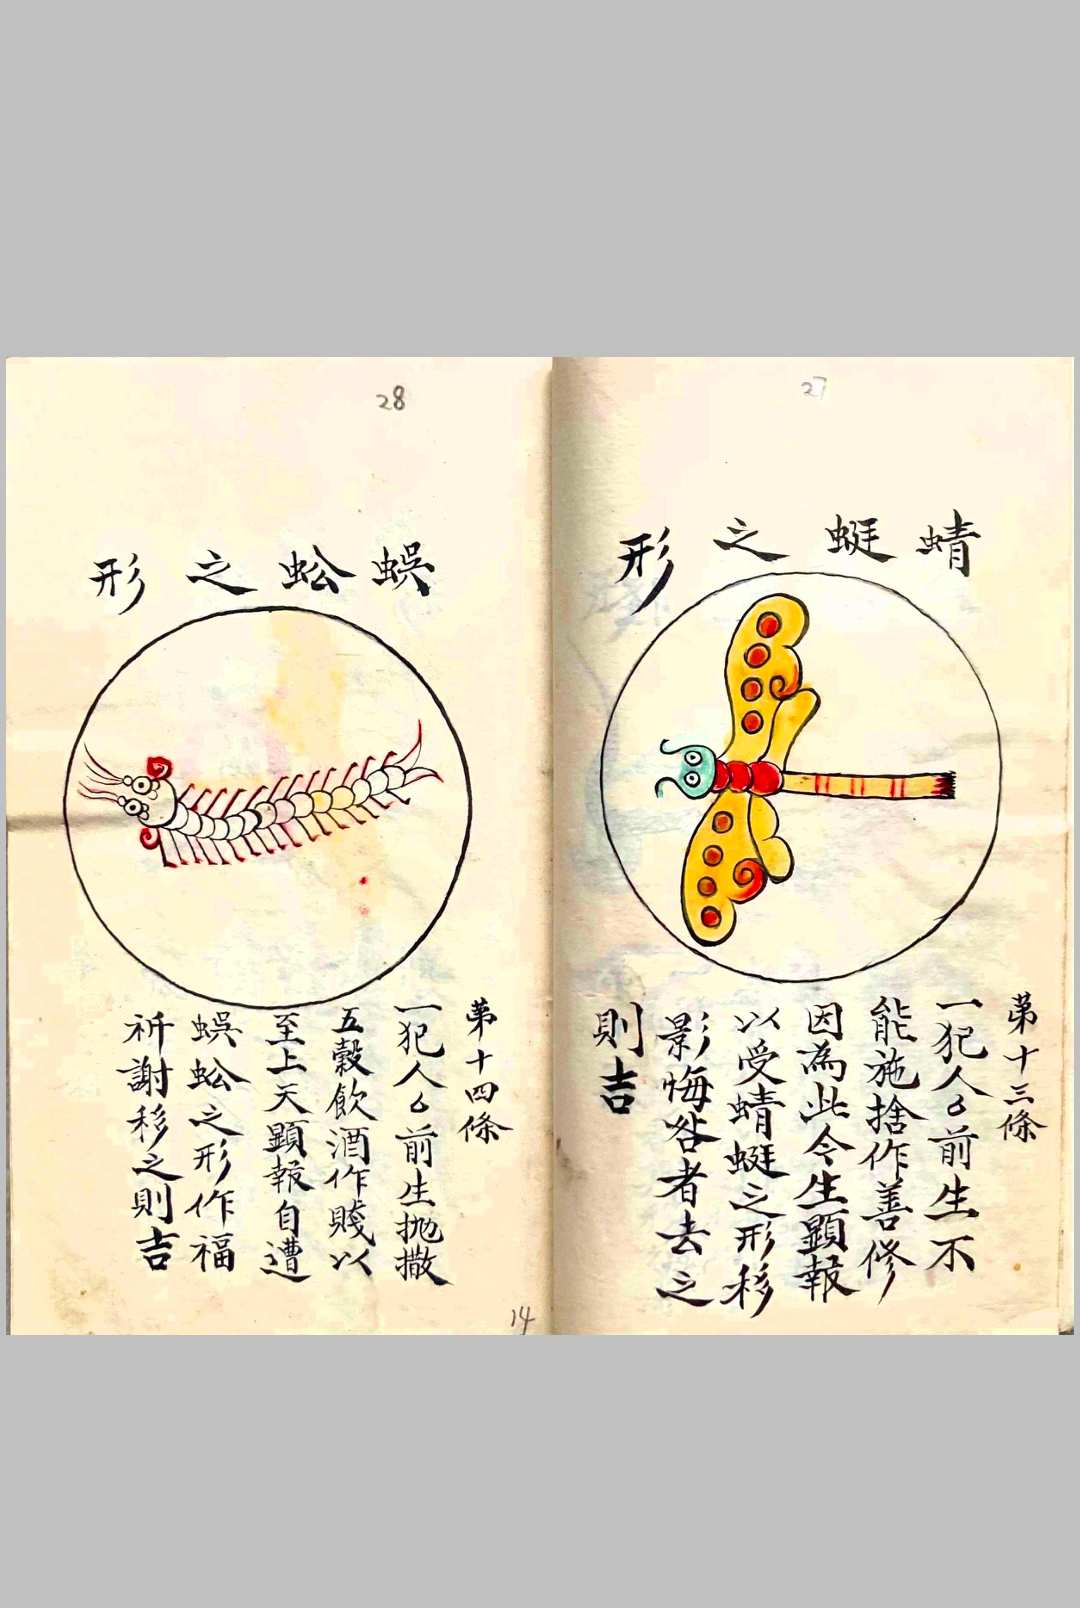 27
蜻蜓之形
第十三條
一犯人〻前生不
能施捨作善修
因為此今生顕報
以受蜻蜓之形移
影悔咎者去之
則吉
28
蜈蚣之形
第十四條
一犯人〻前生抛撒
五穀飲酒作賤以
至上天顕報自遭
蜈蚣之形作福
祈謝移之則吉
14